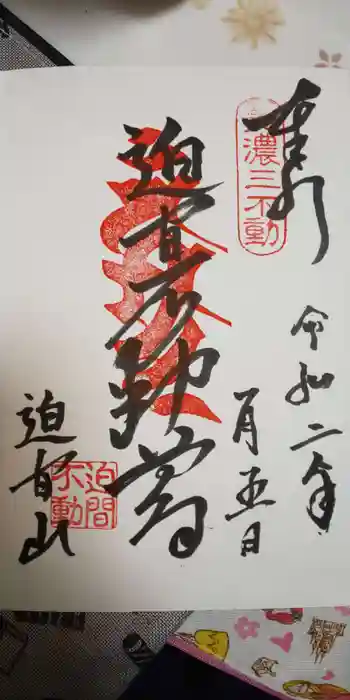 奉拝
美濃三不動
令和二年
一月五日
迫間不動尊
迫間山
迫間不動